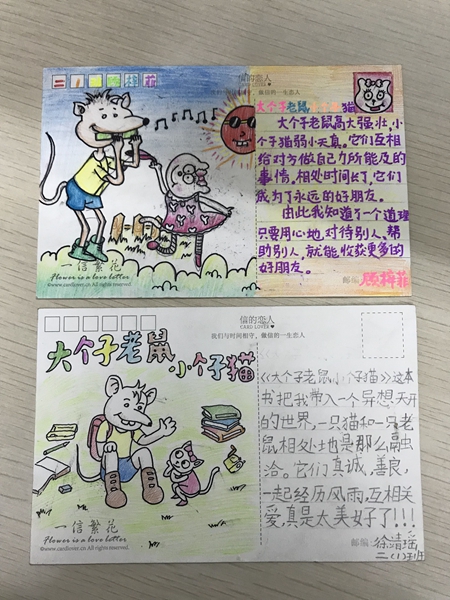 二 1 梓 菲
信的恋人
CARD LOVER
我们与时间相守，做信的一生恋人
大个子老鼠小个子猫
大个子老鼠高大强壮,小
个子猫弱小天真。它们互相
给对方做自己力所能及的
事情。相处时间长了,它们
成为了永远的好朋友。
由此我知道了一个道理
只要用心地,对待别人,帮
助别人,就能收获更多的
好朋友。
一信繁花
Flower is a love letter
©www.cardlover.cn All rights reserved.
邮编
顾梓菲
信的恋人
CARD LOVER
我们与时间相守，做信的一生恋人
大个子老鼠
小个子猫
《大个子老鼠小个子猫》这本
书把我带入一个异想天开
的世界,一只猫和一只老
鼠相处地是那么融
洽。它们真诚,善良,
一起经历风雨,互相关
爱,真是太美好了!!!
一信繁花
Flower is a love letter
©www.cardlover.cn All rights reserved.
邮编
徐靖瑶
二(1)班